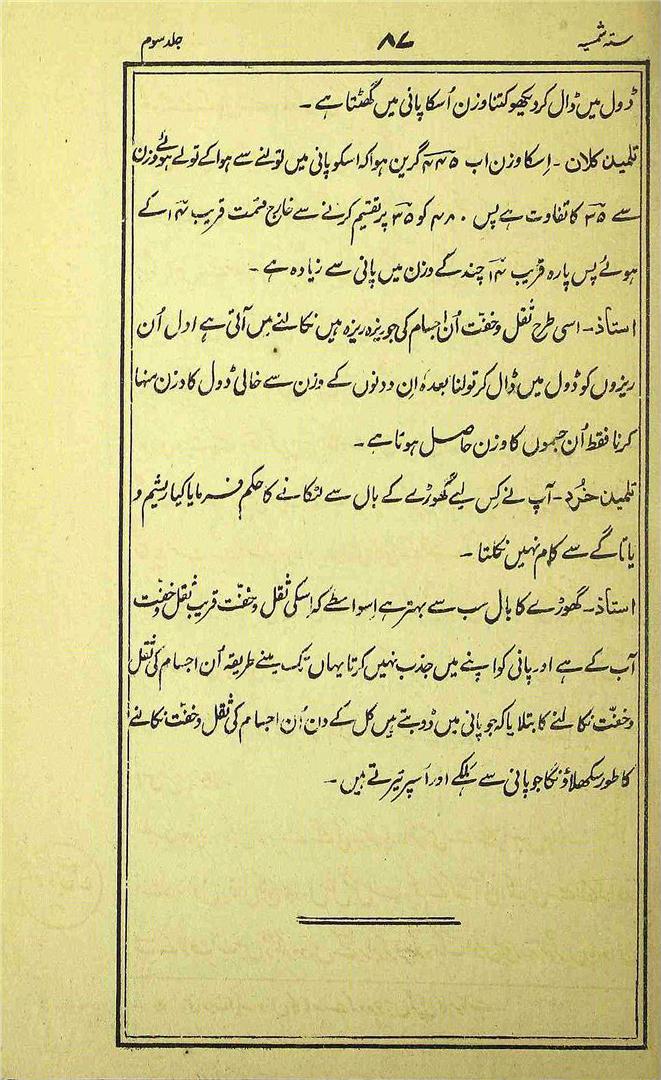 ستہ شمسیہ ۸۷ جلد سوم
ڈول میں ڈال کر دیکھو کتنا وزن اُسکا پانی میں گھٹتا ہے ۔
تلمیذ کلان ۔ اِسکا وزن اب ۴۴۵ گرین ہوا کہ اسکو پانی میں تولنے سے ہوا کے تولے ہوئے وزن
سے ۳۵ کا تفاوت ہے پس ۴۸۰ کو ۳۵ پر تقسیم کرنے سے خارج قسمت قریب ۱۴ کے
ہوئے پس پارہ قریب ۱۴ چند کے وزن میں پانی سے زیادہ ہے ۔
استاذ ۔ اسی طرح ثقل و خفت اُن اجسام کی جو ریزہ ریزہ ہیں نکالنے میں آتی ہے اول اُن
ریزوں کو ڈول میں ڈال کر تولنا بعدہ اِن دونوں کے وزن سے خالی ڈول کا وزن منہا
کرنا فقط اُن جسموں کا وزن حاصل ہوتا ہے ۔
تلمیذ خُرد ۔ آپ نے کِس لیے گھوڑے کے بال سے لٹکانے کا حکم فرمایا کیا ریشم و
یا تاگے سے کام نہیں نکلتا ۔
استاذ ۔ گھوڑے کا بال سب سے بہتر ہے اِسواسطے کہ اِسکی ثقل و خفّت قریب ثقل و خفّت
آب کے ہے اور پانی کو اپنے میں جذب نہیں کرتا یہاں تک مینے طریقہ اُن اجسام کی ثقل
و خفّت نکالنے کا بتلایا کہ جو پانی میں ڈوبتے ہیں کل کے دن اُن اجسام کی ثقل و خفّت نکالنے
کا طور سکھلاؤنگا جو پانی سے ہلکے اور اُسپر تیرتے ہیں ۔